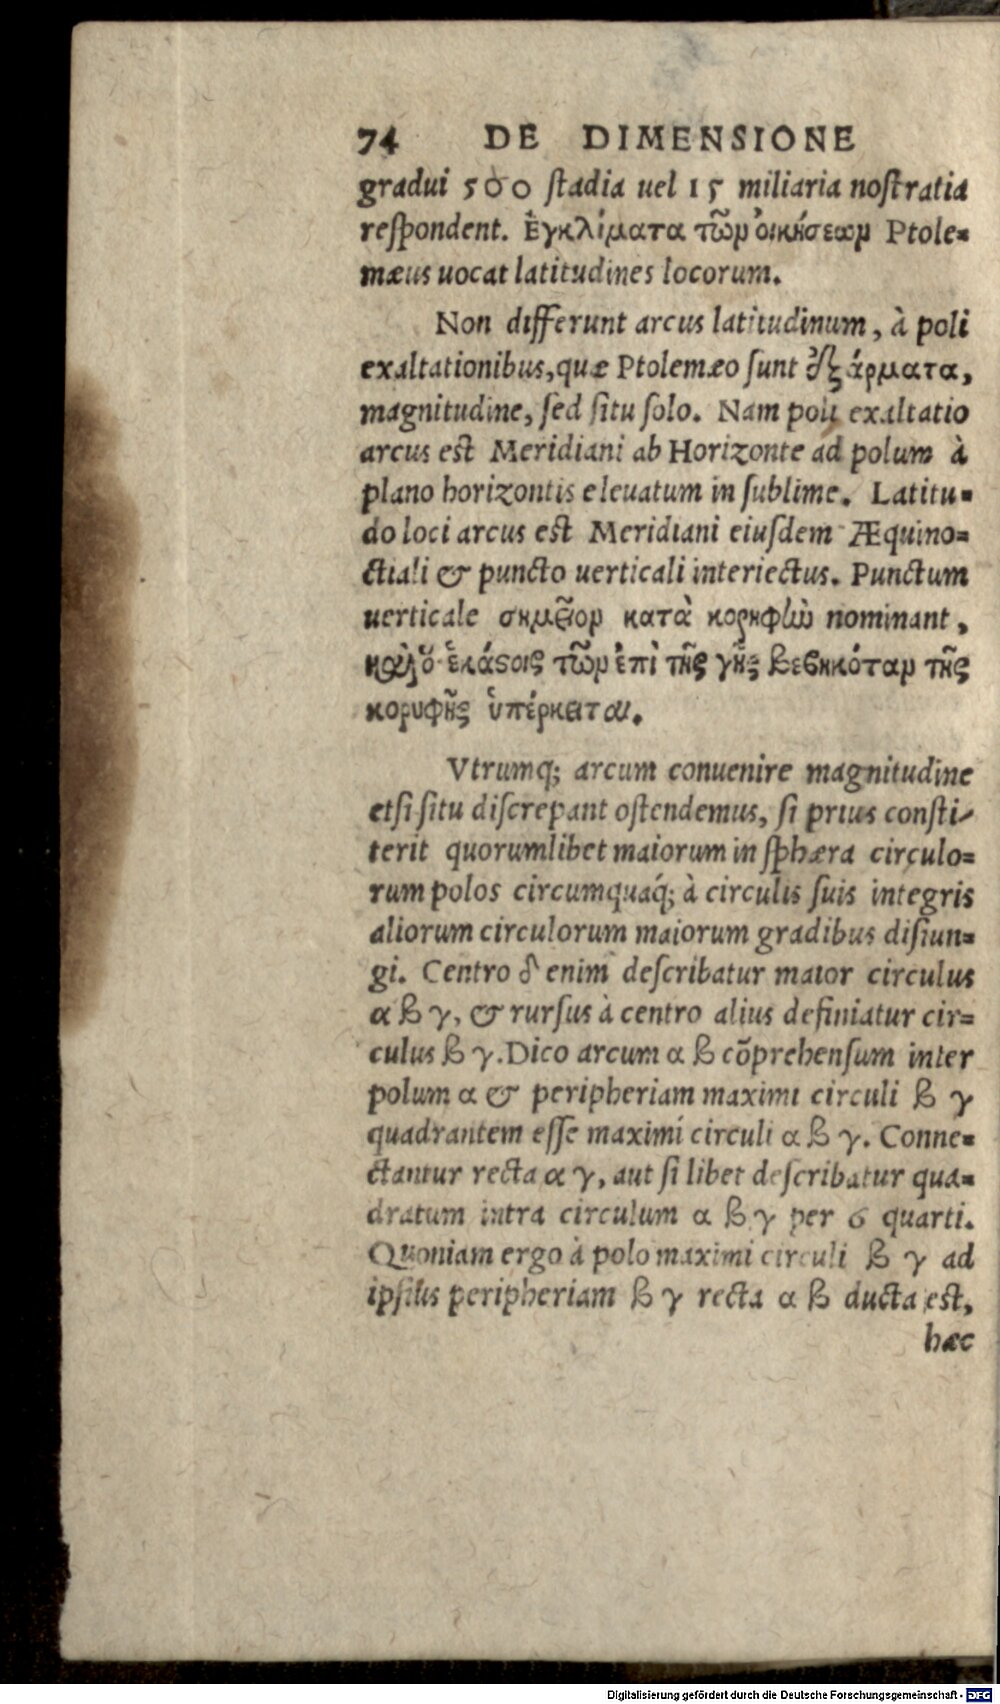 74 DE DIMENSIONE
gradui 500 ſtadia uel 15 miliaria noſtratia
reſpondent. Ἐγκλίματα τῶν οἰκήσεων Ptole-
mæus uocat latitudines locorum.
Non differunt arcus latitudinum, à poli
exaltationibus, quæ Ptolemæo ſunt ἐξάρματα,
magnitudine, ſed ſitu ſolo. Nam poli exaltatio
arcus eſt Meridiani ab Horizonte ad polum à
plano horizontis eleuatum in ſublime. Latitu-
do loci arcus eſt Meridiani eiuſdem Æquino-
ctiali & puncto uerticali interiectus. Punctum
uerticale σημεῖον κατὰ κορυφὼ nominant,
καὶ ὃ ἑκάϛοις τῶν ἐπὶ τῆς γῆς βεβηκόταν τῆς
κορυφῆς ὑπέρκειται.
Vtrumq; arcum conuenire magnitudine
etſi ſitu diſcrepant oſtendemus, ſi prius conſti-
terit quorumlibet maiorum in ſphæra circulo-
rum polos circumquaq́; à circulis ſuis integris
aliorum circulorum maiorum gradibus diſiun-
gi. Centro δ enim deſcribatur maior circulus
α β γ, & rurſus à centro alius definiatur cir-
culus β γ. Dico arcum α β cõprehenſum inter
polum α & peripheriam maximi circuli β γ
quadrantem eſſe maximi circuli α β γ. Conne-
ctantur recta α γ, aut ſi libet deſcribatur qua-
dratum intra circulum α β γ per 6 quarti.
Quoniam ergo à polo maximi circuli β γ ad
ipſius peripheriam β γ recta α β ducta eſt,
hæc
Digitalisierung gefördert durch die Deutsche Forschungsgemeinschaft - DFG